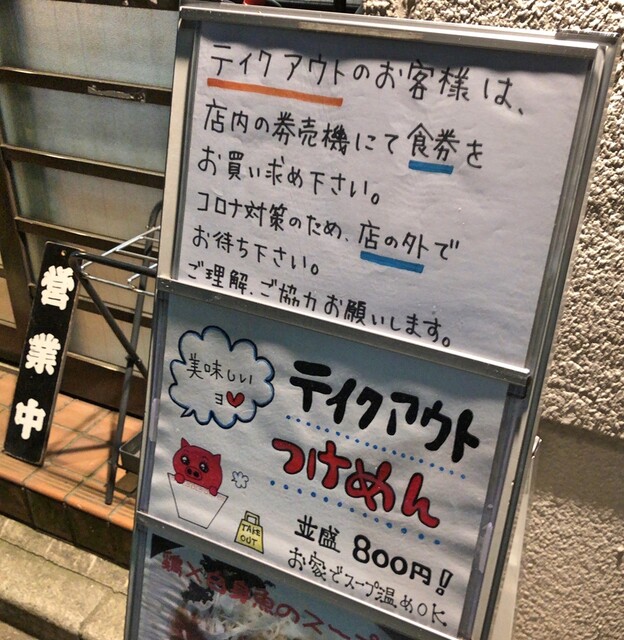 テイクアウトのお客様は、
店内の券売機にて食券を
お買い求め下さい。
コロナ対策のため、店の外で
お待ち下さい。
ご理解、ご協力お願いします。
営業中
美味しい
ヨ
テイクアウト
つけめん
TAKE
OUT
並盛 800円!
お家でスープ温めOK
魚のスープ